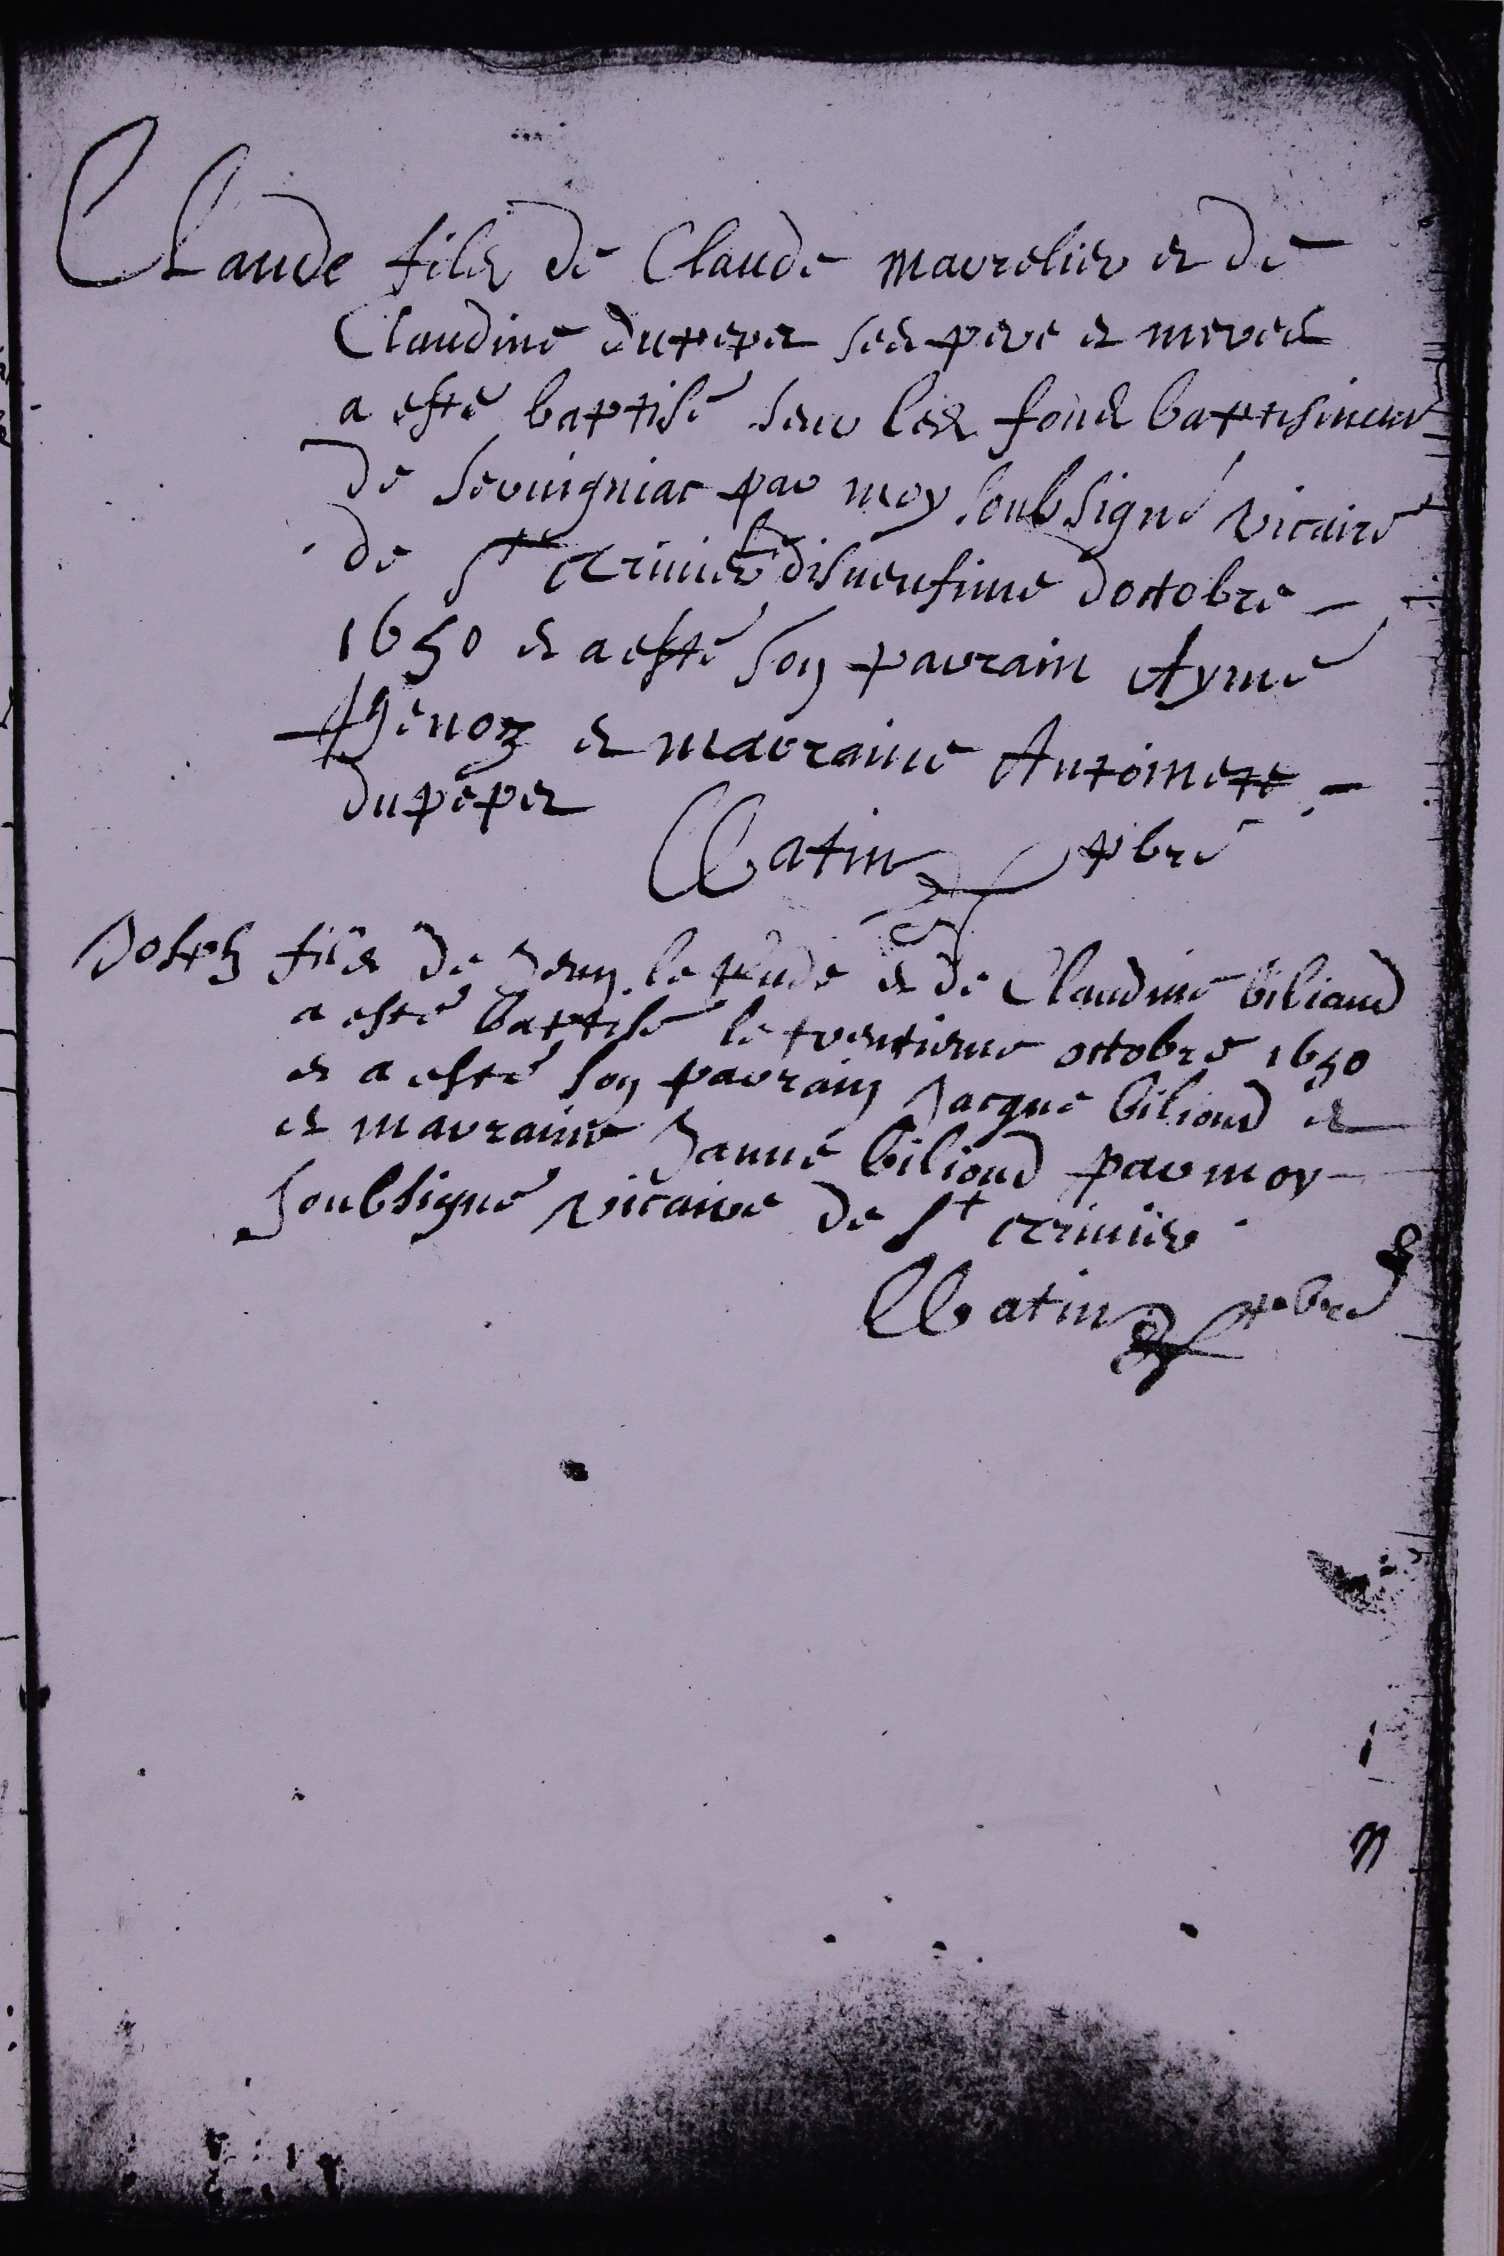 Claude fils de Claude Marrelier et de
Claudine dupepet ses pere et meres
a esté baptisé seur les fons baptismeur
de servigniac par moy soubsigné vicaire
de St Trivier le disneufime doctobre
1650 et a esté son parrain Aymé
thevoz et marraine Antoinete
dupepet
CBatin pbre
Joseph fils de Jean le Rude et de Claudine biliaud
a esté baptisé le trentieme octobre 1650
et a esté son parrain Jacque biliond et
et marraine Janne biliond par moy
soubsigné vicaire de St Trivier
CBatin pbre